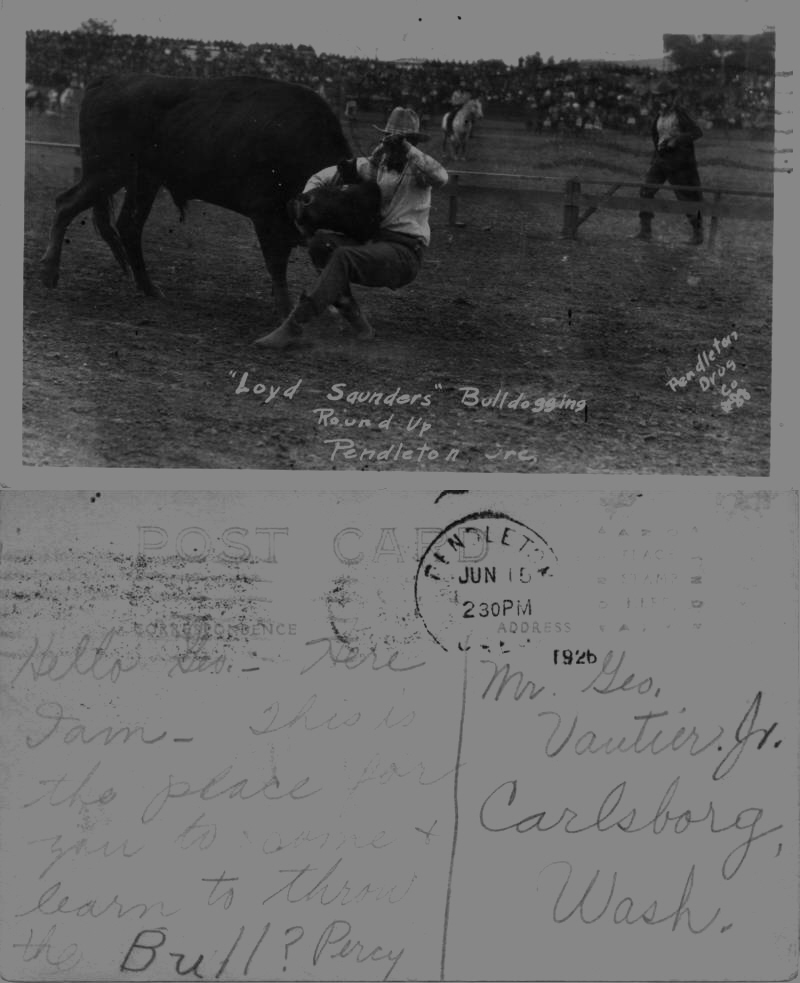 "Loyd Saunders" Bulldogging
Round Up
Pendleton Ore,
Pendleton
Drug
Co
POST CARD
CORRESPONDENCE
ADDRESS
PENDLETON
JUN 15
230PM
1926
Hello Geo. – Here
I am – This is
the place for
you to come +
learn to throw
the Bull? Percy
Mr. Geo.
Vautier. Jr.
Carlsborg,
Wash.